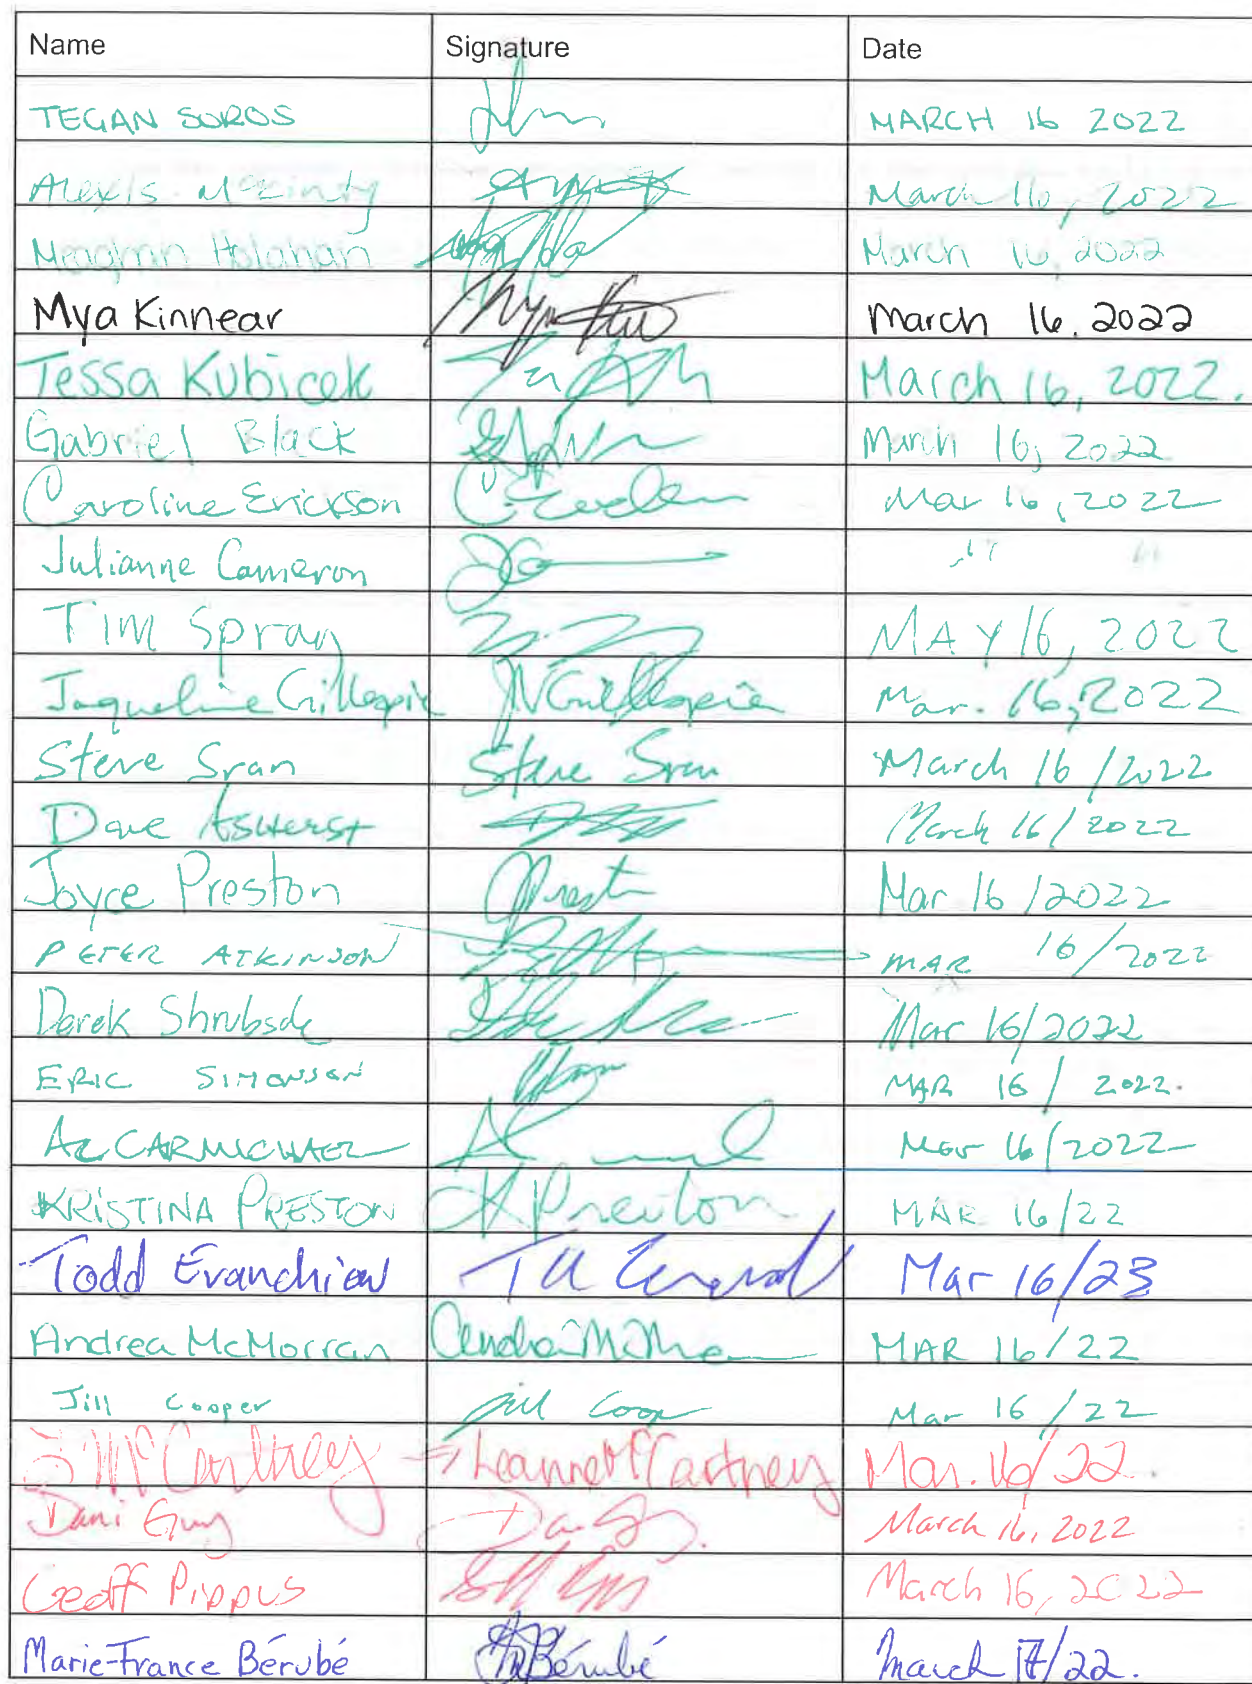 Name Signature Date
TEGAN SOROS MARCH 16 2022
Alexis McGinty March 16, 2022
Meaghan Holahan March 16, 2022
Mya Kinnear March 16, 2022
Tessa Kubicek March 16, 2022.
Gabriel Black March 16, 2022
Caroline Erickson C. Erickson Mar 16, 2022
Julianne Cameron " "
Tim Spray MAY 16, 2022
Jaqueline Gillespie JNGillespie Mar. 16, 2022
Steve Sran Steve Sran March 16/2022
Dave Asherst March 16/2022
Joyce Preston JPreston Mar 16/2022
PETER ATKINSON MAR 16/2022
Derek Shrubsole Mar 16/2022
ERIC SIMONSEN MAR 16/2022.
AL CARMICHAEL Mar 16/2022
KRISTINA PRESTON KPreston MAR 16/22
Todd Evanchiew Mar 16/23
Andrea McMorran Andrea McMo MAR 16/22
Jill Cooper Jill Coop Mar 16/22
McCartney Leanne McCartney Mar. 16/22.
Dani Guy March 16, 2022
Geoff Pippus March 16, 2022
Marie-France Bérubé MBérubé March 17/22.